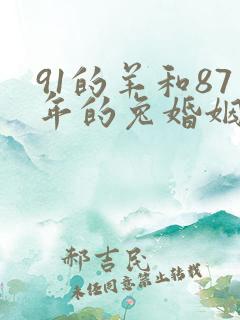 91的羊和87
年的兔婚姻
郝吉民
未经同意禁止转载